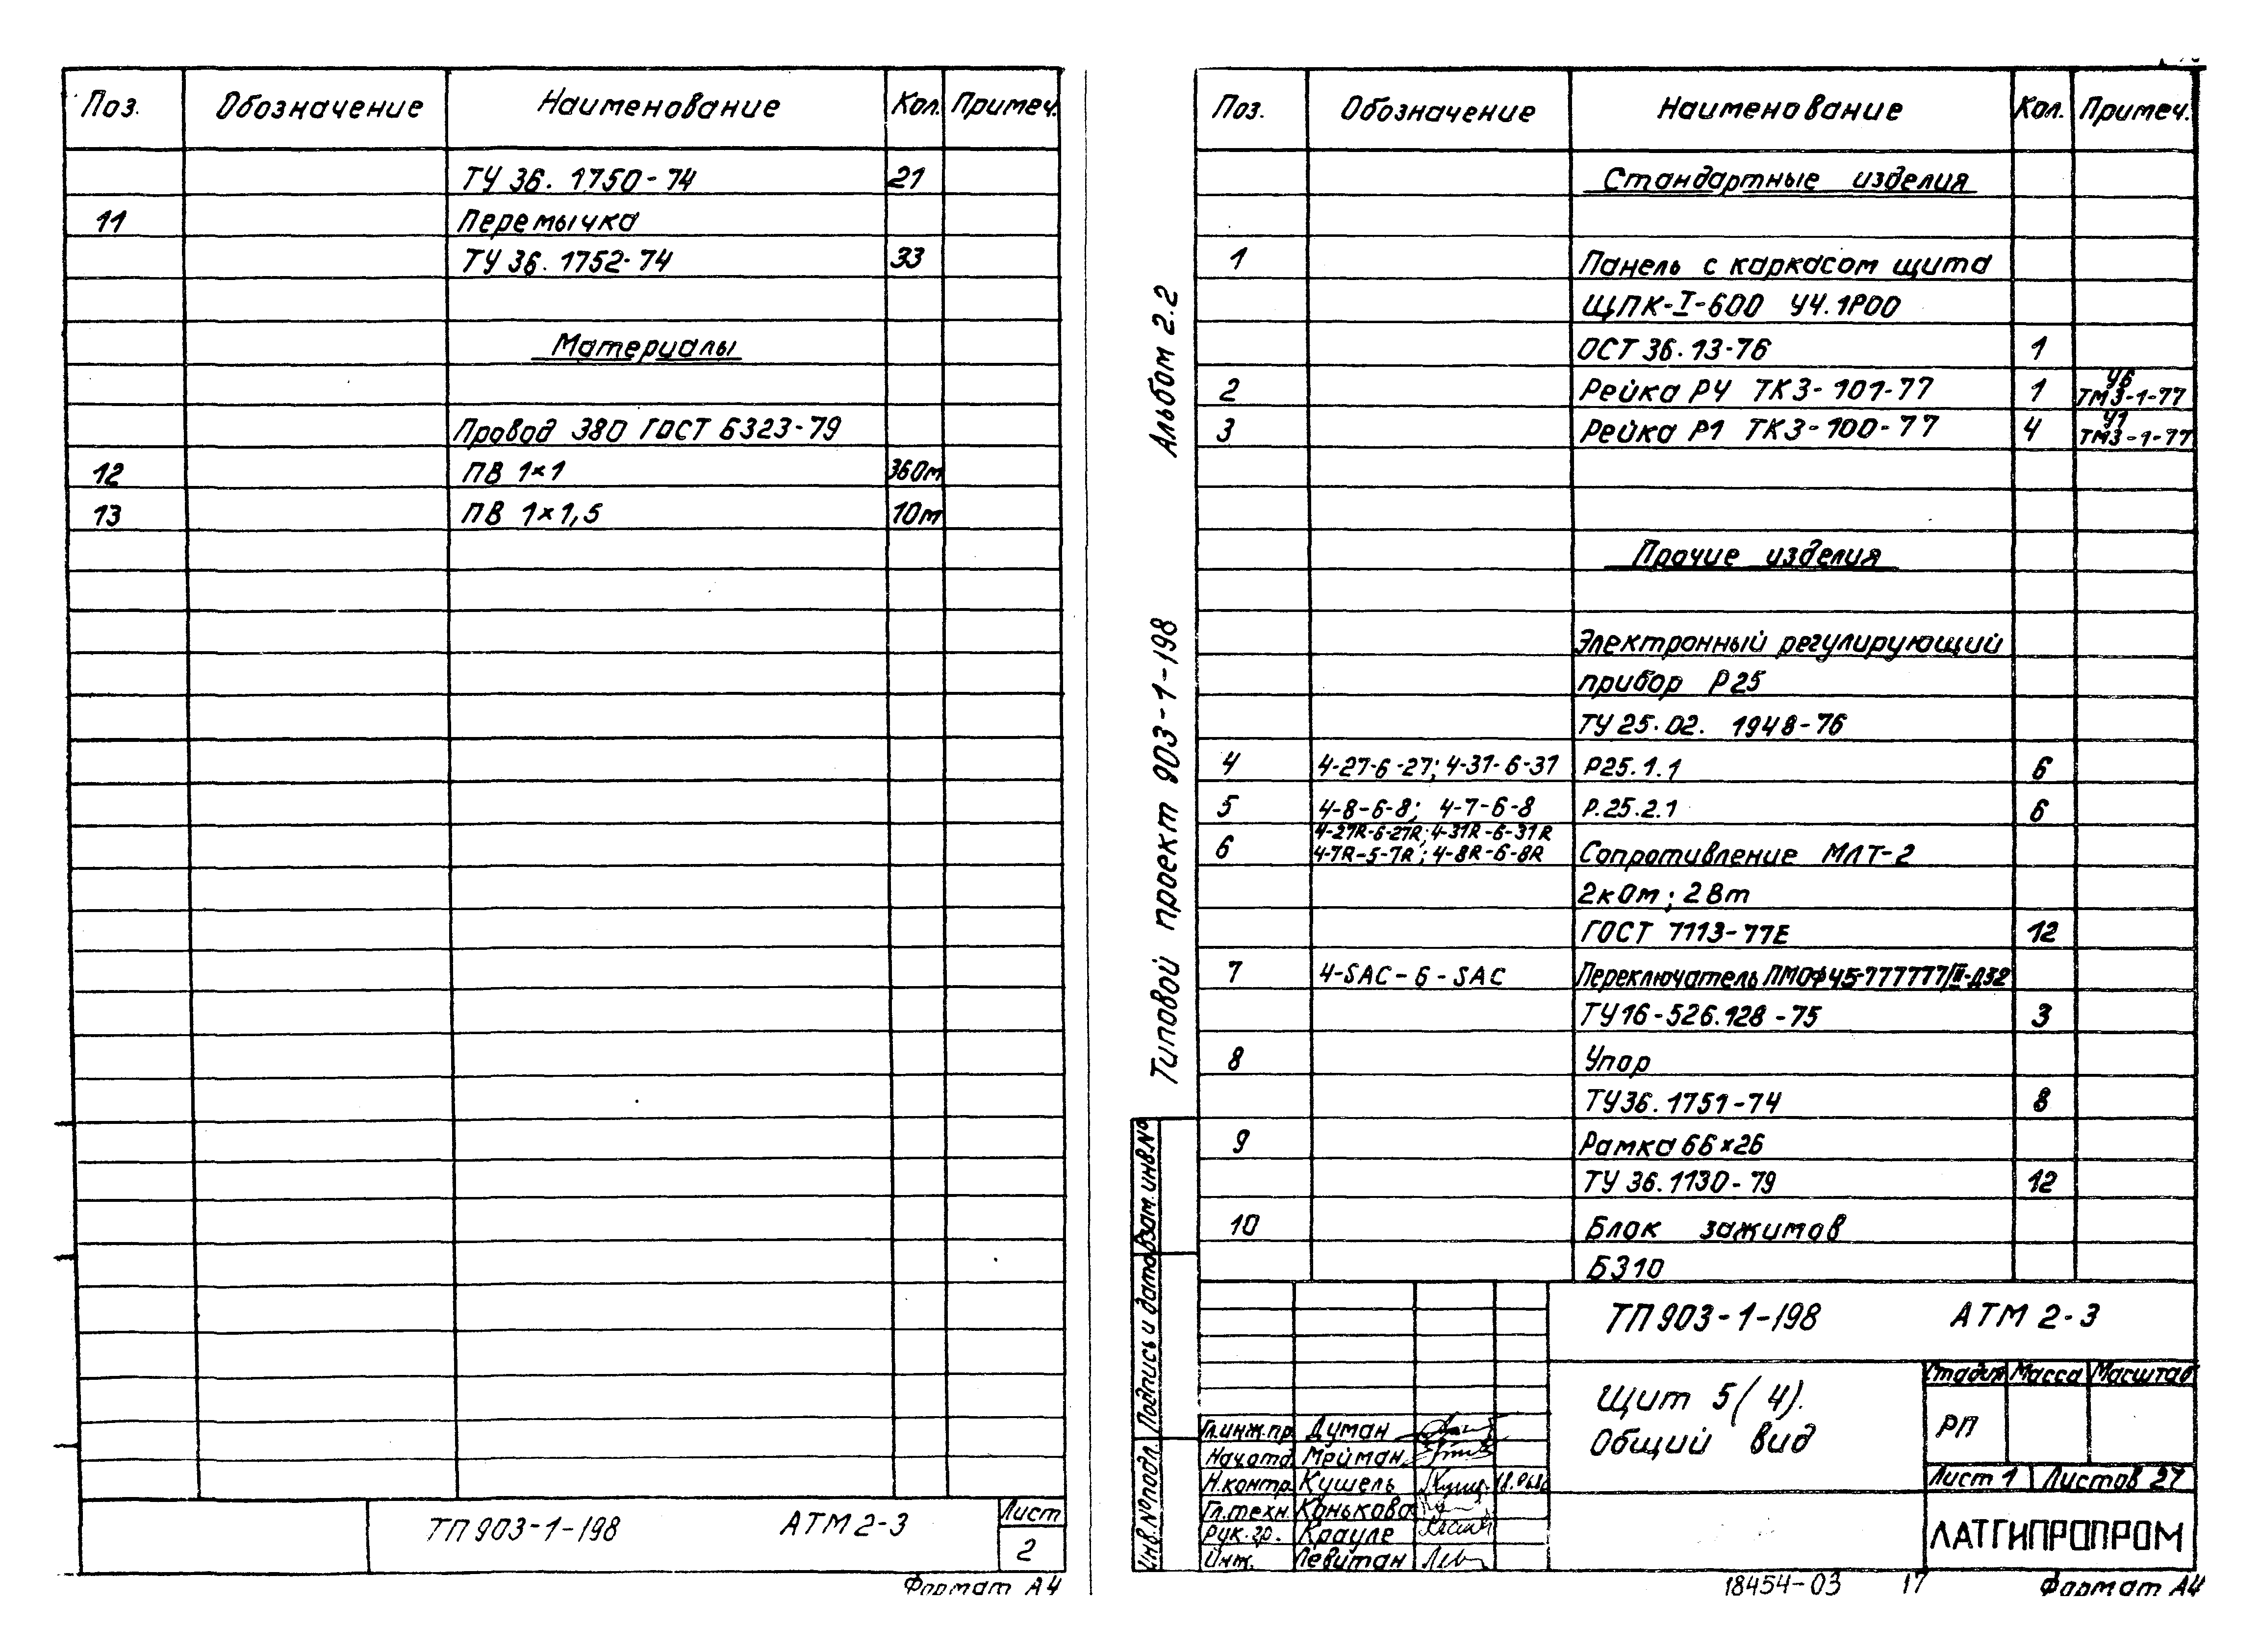 Поз. Обозначение Наименование Кол. Примеч.
ТУ 36. 1750-74 21
11 Перемычка
ТУ 36. 1752-74 33
Материалы
Провод 380 ГОСТ 6323-79
12 ПВ 1×1 360м
13 ПВ 1×1,5 10м
ТП 903-1-198 АТМ 2-3
Лист
2
Формат А4
Альбом 2.2
Типовой проект 903-1-198
Поз. Обозначение Наименование Кол. Примеч.
Стандартные изделия
1 Панель с каркасом щита
ЩПК-I-600 УЧ.1Р00
ОСТ 36.13-76 1
2 Рейка РЧ ТК3-101-77 1 У6 ТМ3-1-77
3 Рейка Р1 ТК3-100-77 4 У1 ТМ3-1-77
Прочие изделия
Электронный регулирующий
прибор Р25
ТУ 25.02. 1948-76
4 4-27-6-27; 4-31-6-31 Р25.1.1 6
5 4-8-6-8; 4-7-6-8 Р.25.2.1 6
4-27R-6-27R; 4-31R-6-31R
6 4-7R-5-7R; 4-8R-6-8R Сопротивление МЛТ-2
2кОм; 2Вт
ГОСТ 7113-77Е 12
7 4-SAC-6-SAC Переключатель ПМОФ45-777777/III-Д32
ТУ16-526.128-75 3
8 Упор
ТУ36.1751-74 8
9 Рамка 66×26
ТУ 36.1130-79 12
10 Блок зажимов
БЗ10
Инв.№подл. Подпись и дата Взам.инв.№
ТП 903-1-198 АТМ 2-3
Щит 5(4).
Общий вид
Стадия Масса Масштаб
РП
Лист 1 Листов 27
ЛАТГИПРОПРОМ
Гл.инж.пр. Думан
Нач.отд. Мейман
Н.контр. Кушель
Гл.техн. Конькова
Рук.гр. Крауле
Инж. Левитан
18454-03 17 Формат А4